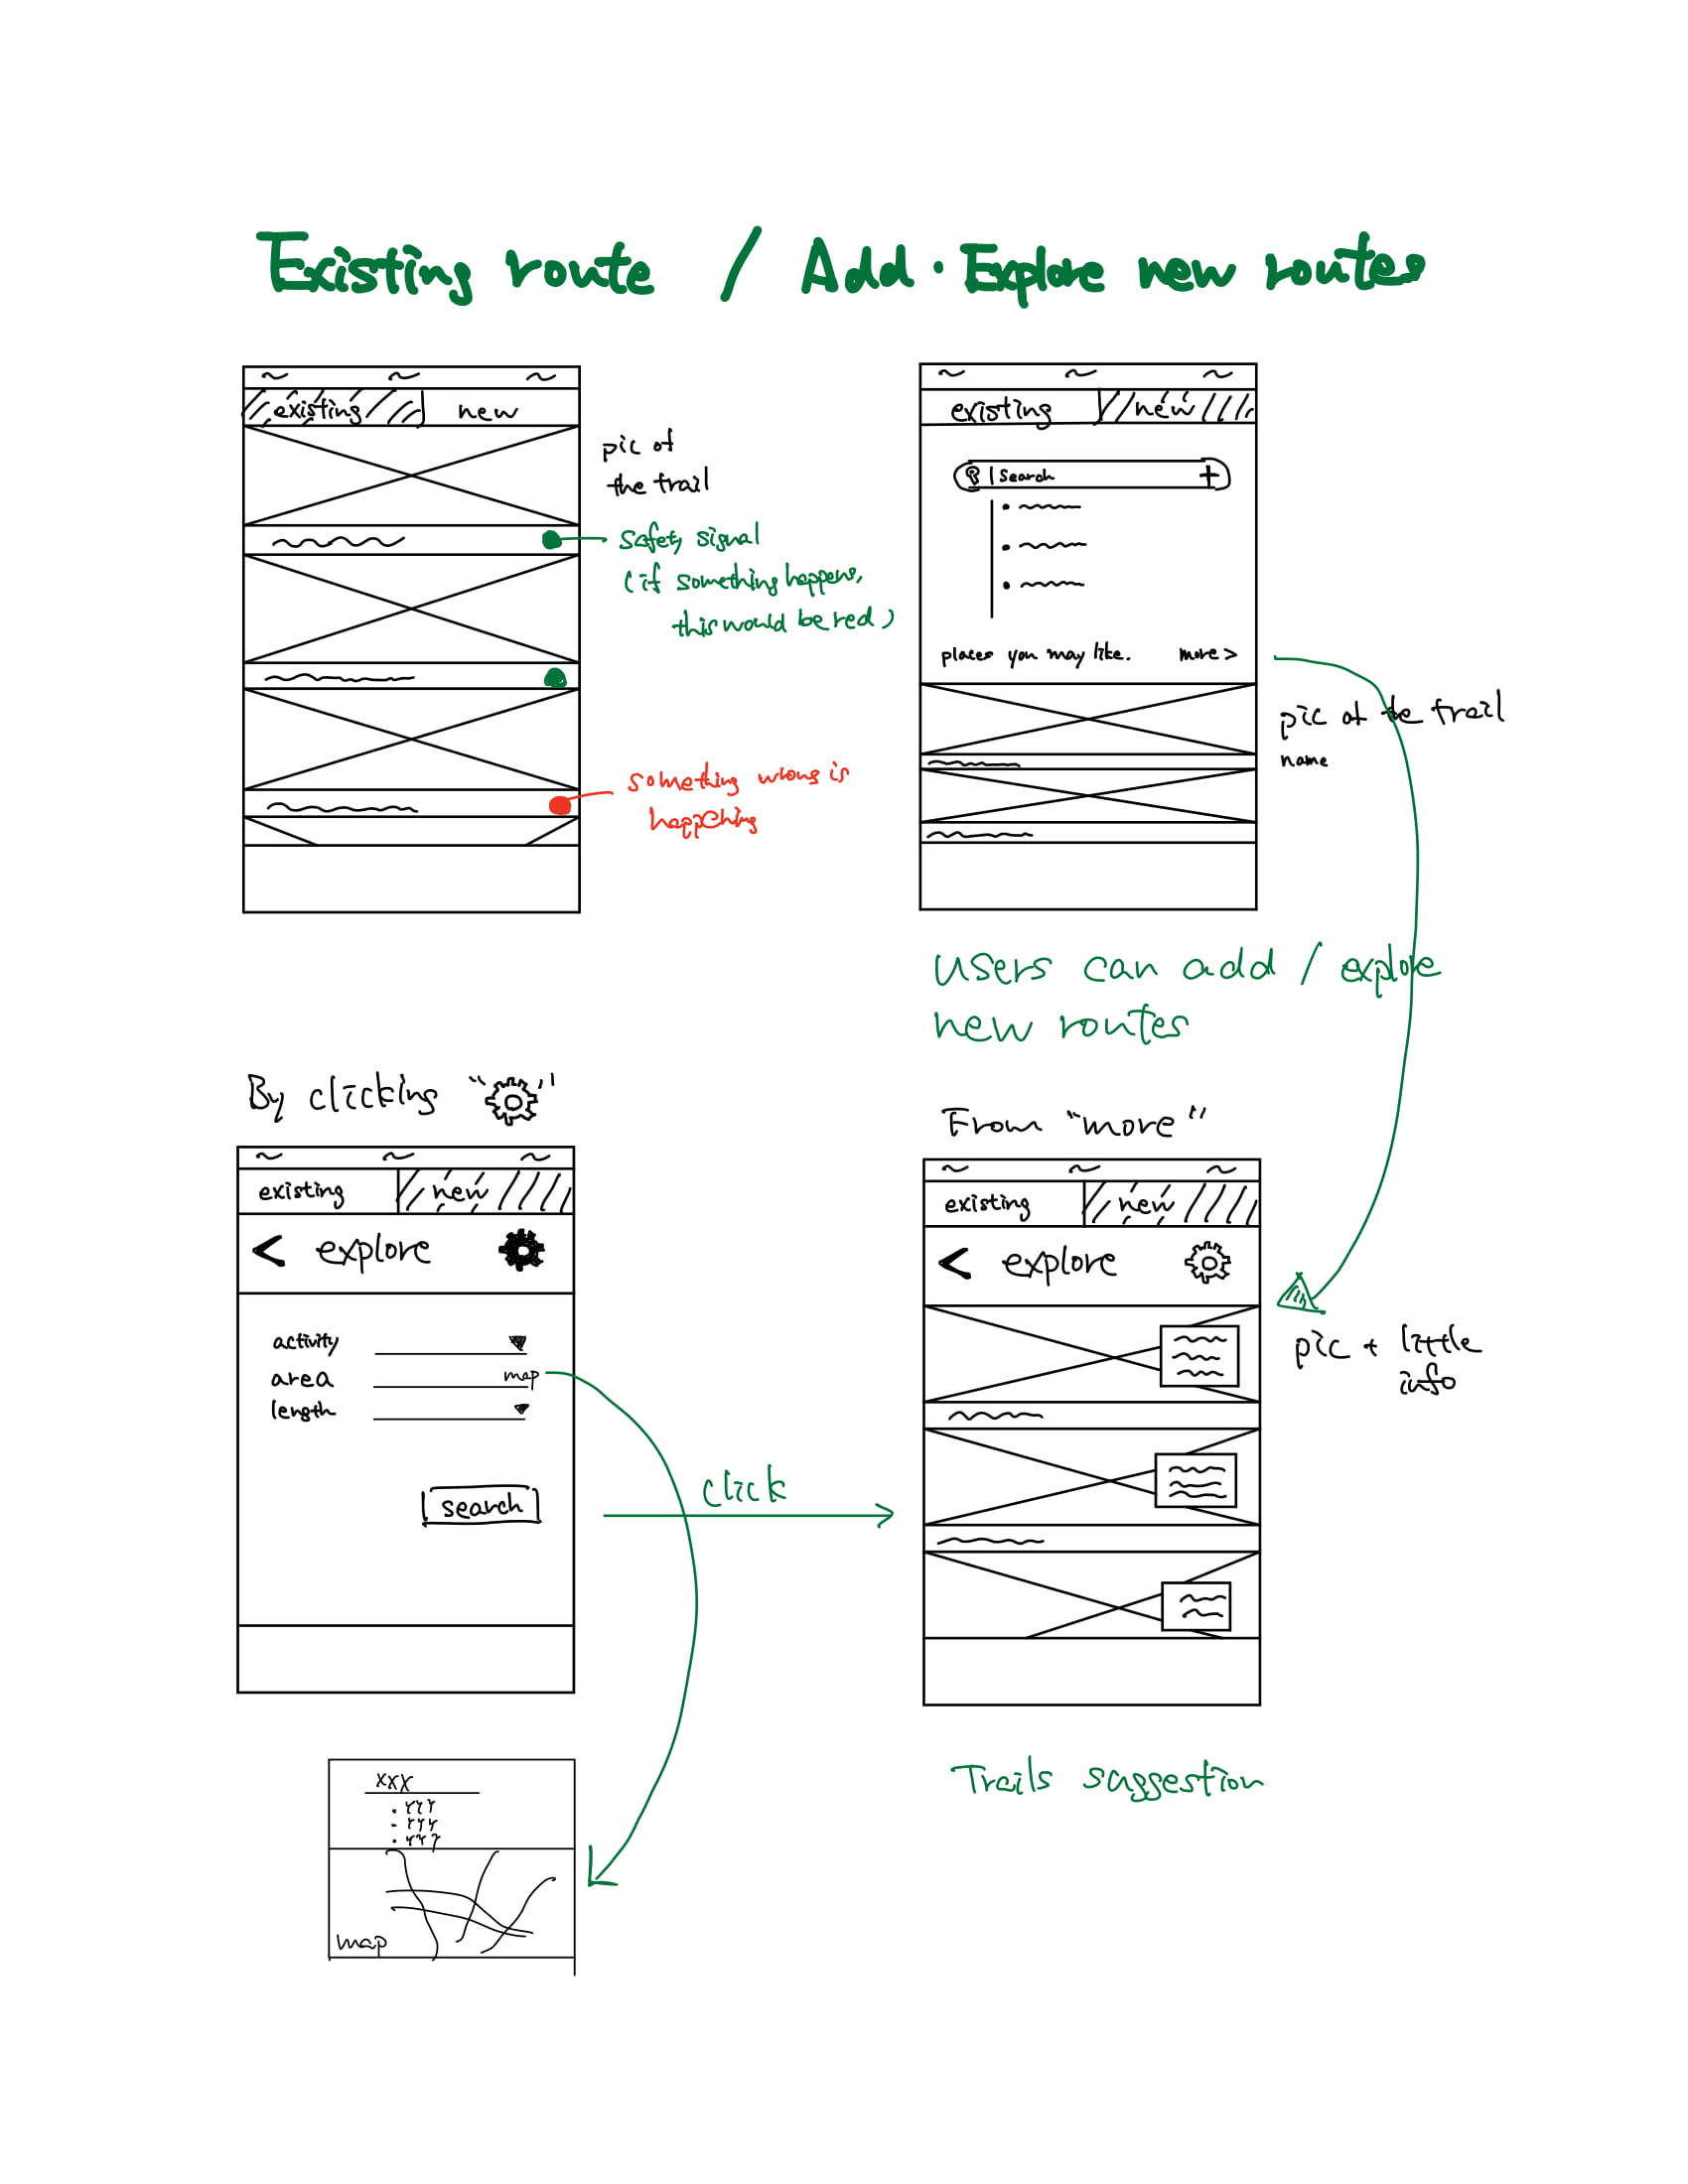 Existing route / Add · Explore new routes
existing new
pic of
the trail
Safety signal
(if something happens,
this would be red)
something wrong is
happening
existing new
Search +
places you may like. more >
pic of the trail
name
users can add / explore
new routes
By clicking " "
existing new
< explore
activity
area map
length
search
click
From "more"
existing new
< explore
pic + little
info
Trails suggestion
xxx
• YYY
- YYY
• YYY
map